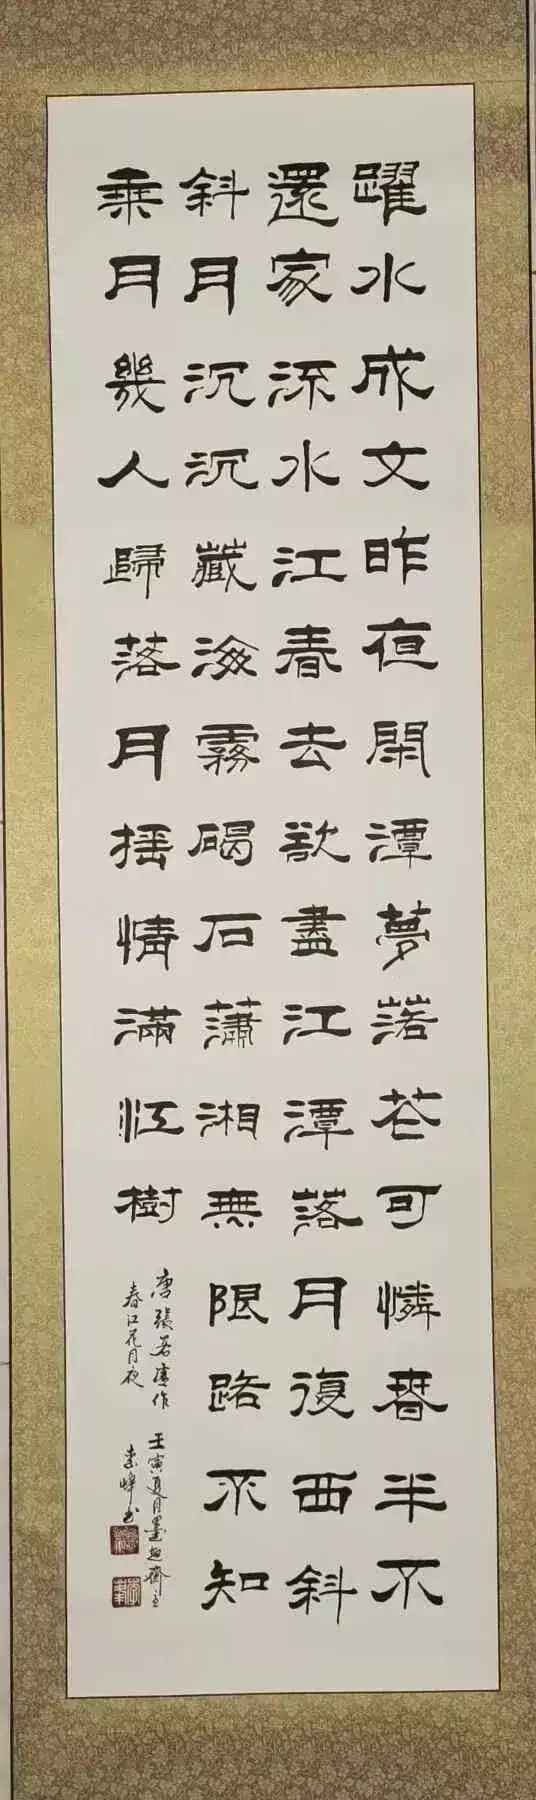 躍水成文昨夜閑潭夢落花可憐春半不
還家流水江春去欲盡江潭落月復西斜
斜月沉沉藏海霧碣石蕭湘無限路不知
乘月幾人歸落月揺情滿江樹
唐張若虛作
春江花月夜
壬寅夏月墨
書